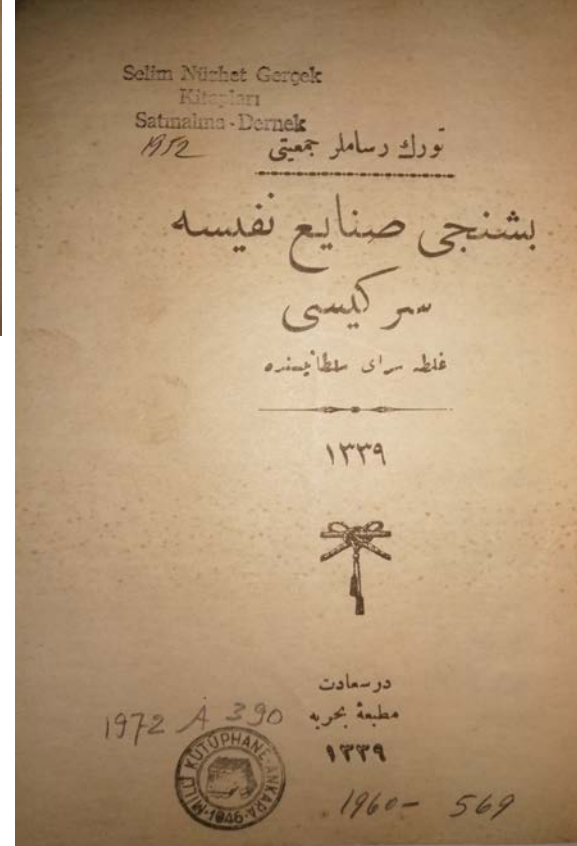 Selim Nüzhet Gerçek
Kitapları
Satınalma - Dernek
1952
تورك رساملر جمعيتى
بشنجى صنايع نفيسه
سركيسى
غلطه سراى سلطانيسنده
١٣٣٩
در سعادت
مطبعۀ بحريه
١٣٣٩
1972 A 390
MİLLÎ KÜTÜPHANE-ANKARA
1946
1960- 569